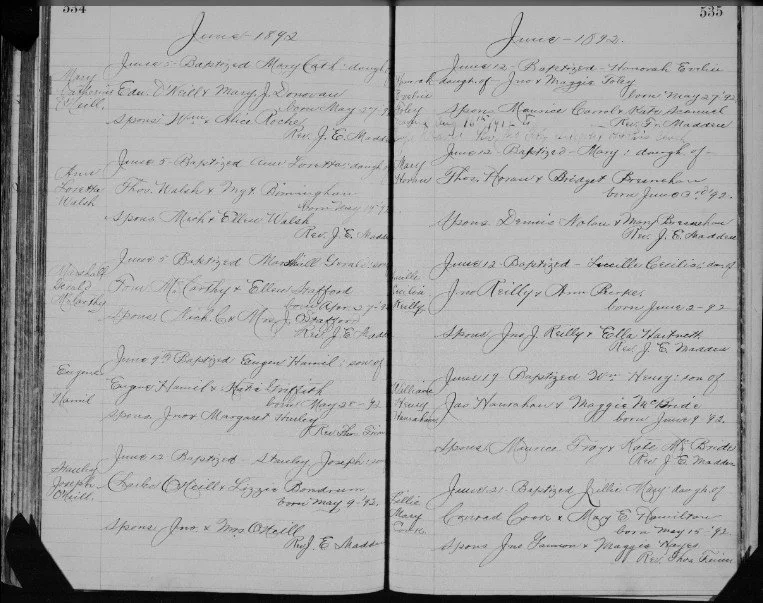 534
June 1892
Mary
Catherine
O'Neill
June 5 - Baptized Mary Cath: daugh
Edw. O'Neill & Mary J. Donovan
born May 27 '92
Spons: Wm. & Alice Roche
Rev. J. E. Madden
Ann
Loretta
Walsh
June 5 - Baptized Ann Loretta: daugh
Thos. Walsh & Mgt. Bimingham
born May
Spons Mich & Ellen Walsh
Rev. J. E. Madden
Marshall
Gerald
McCarthy
June 5 Baptized Marshall Geral: son
McCarthy & Ellen Stafford
born Apr 27 '92
Spons: Nich C. & Mrs J. Stafford
Rev J. E. Madden
Eugene
Hamil
June 9th Baptized Eugen Hamil: son of
Eugene Hamil & Kate Griffith
born May 28 - 92
Spons Jno & Margaret Hurley
Rev Thos.
Stanley
Joseph
O'Neill
June 12 Baptized - Stanley Joseph: son
O'Neill & Lizzie Bondrum
born May 9 - '92.
Spons: Jno. & Mrs O'Neill
Rev J. E Madden
535
June - 1892.
June 12 - Baptized - Honorah Evelin
daugh. of - Jno & Maggie Foley
born May 27 '92
Spons Maurice Carrol & Kate
Rev. F. Madden
Mary
Horan
June 12 - Baptized - Mary: daugh of -
Thos. Horan & Bridget Bresnahan
born June 3rd '92.
Spons Dennis Nolan & Mary Bresnahan
Rev. J. E. Madden
Lucille
Cecilia
Reilly
June 12 - Baptized - Lucille Cecilia: dau of
Jno Reilly & Ann
born June 2 - 92
Spons Jno J Reilly & Ella Hartnett
Rev J. E. Madden
William
Henry
Hanrahan
June 19 Baptized Wm Henry: son of
Jas Hanrahan & Maggie McBride
born June 9 '92.
Spons: Maurice Troy & Kate McBride
Rev J. E. Madden
Lillie
Mary
June 21 - Baptized Lillie Mary daugh. of
Conrad Cook & Mary E. Hamilton
born May 15 - '92
Spons Jno & Maggie Hayes
Rev. Thos